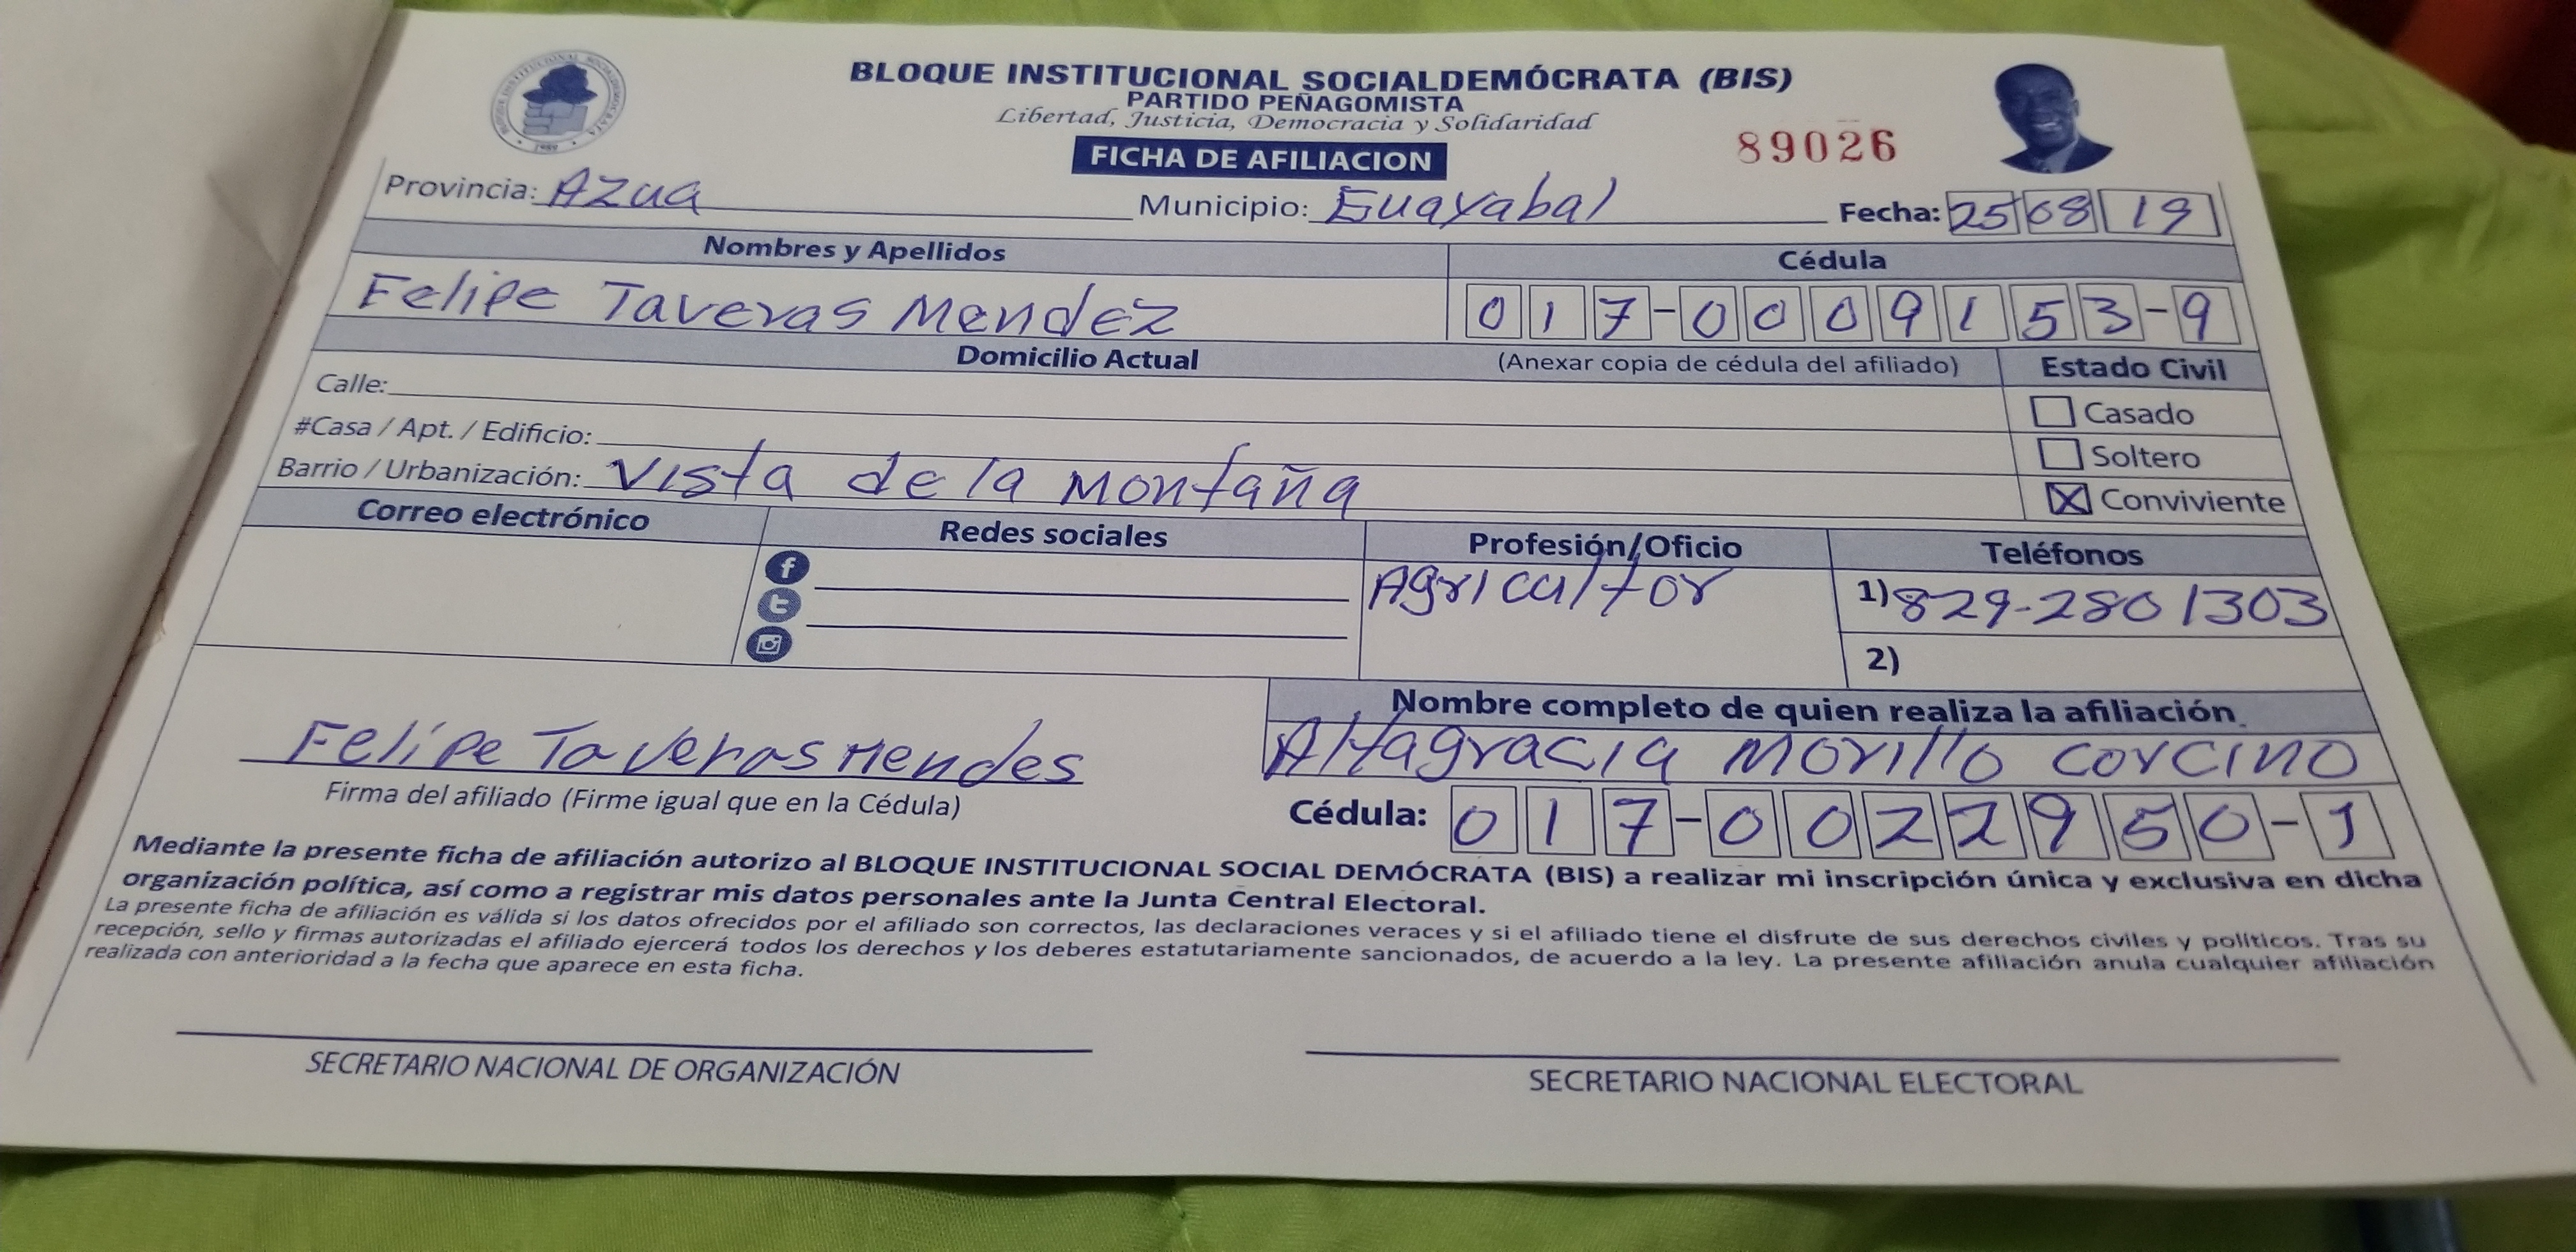 BLOQUE INSTITUCIONAL SOCIALDEMÓCRATA (BIS)
PARTIDO PEÑAGOMISTA
Libertad, Justicia, Democracia y Solidaridad
FICHA DE AFILIACION
89026
Provincia: Azua Municipio: Guayabal Fecha: 25 08 19
Nombres y Apellidos Cédula
Felipe Taveras Mendez 017-0009153-9
Domicilio Actual (Anexar copia de cédula del afiliado) Estado Civil
Calle: Casado
#Casa / Apt. / Edificio: Soltero
Barrio / Urbanización: Vista de la Montaña Conviviente
Correo electrónico Redes sociales Profesión/Oficio Teléfonos
Agricultor 1) 829-2801303
2)
Nombre completo de quien realiza la afiliación
Felipe Taveras Mendes Altagracia Morillo Corcino
Firma del afiliado (Firme igual que en la Cédula) Cédula: 017-0022950-1
Mediante la presente ficha de afiliación autorizo al BLOQUE INSTITUCIONAL SOCIAL DEMÓCRATA (BIS) a realizar mi inscripción única y exclusiva en dicha
organización política, así como a registrar mis datos personales ante la Junta Central Electoral.
La presente ficha de afiliación es válida si los datos ofrecidos por el afiliado son correctos, las declaraciones veraces y si el afiliado tiene el disfrute de sus derechos civiles y políticos. Tras su
recepción, sello y firmas autorizadas el afiliado ejercerá todos los derechos y los deberes estatutariamente sancionados, de acuerdo a la ley. La presente afiliación anula cualquier afiliación
realizada con anterioridad a la fecha que aparece en esta ficha.
SECRETARIO NACIONAL DE ORGANIZACIÓN SECRETARIO NACIONAL ELECTORAL